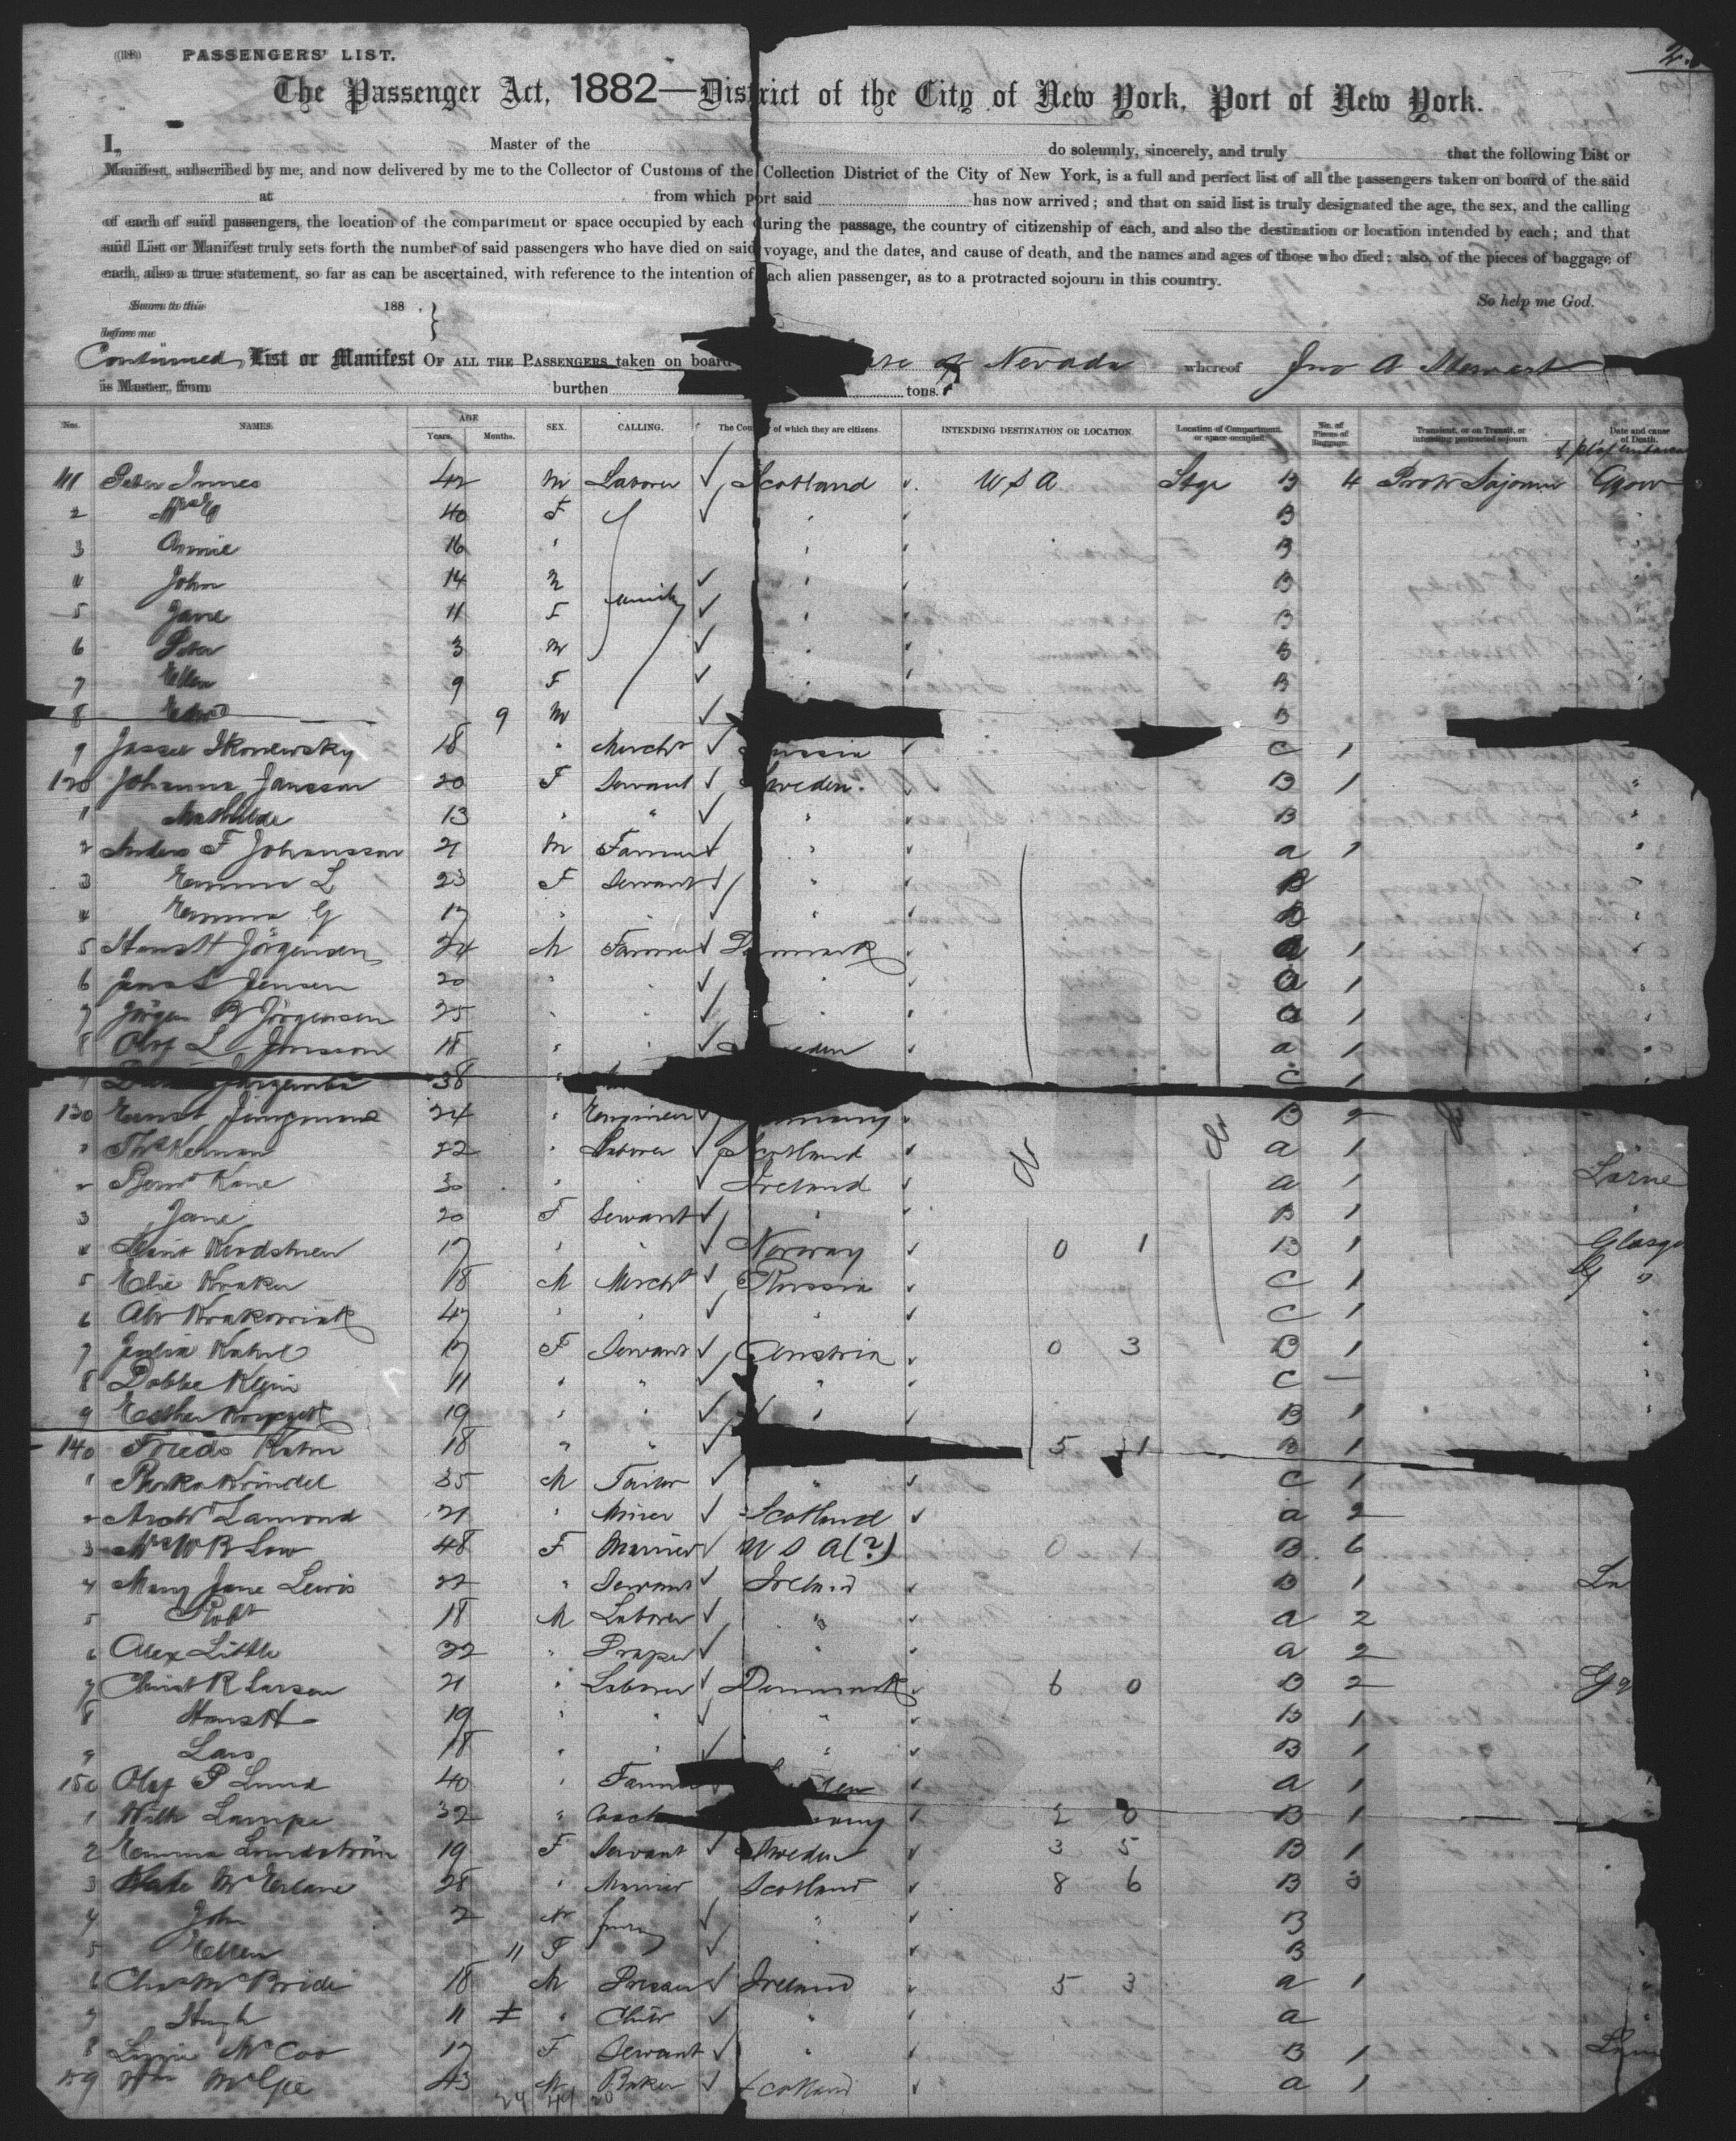 PASSENGERS' LIST.
The Passenger Act, 1882—District of the City of New York, Port of New York.
I, Master of the do solemnly, sincerely, and truly that the following List or
Manifest, subscribed by me, and now delivered by me to the Collector of Customs of the Collection District of the City of New York, is a full and perfect list of all the passengers taken on board of the said
at from which port said has now arrived; and that on said list is truly designated the age, the sex, and the calling
of each of said passengers, the location of the compartment or space occupied by each during the passage, the country of citizenship of each, and also the destination or location intended by each; and that
said List or Manifest truly sets forth the number of said passengers who have died on said voyage, and the dates, and cause of death, and the names and ages of those who died; also, of the pieces of baggage of
each, also a true statement, so far as can be ascertained, with reference to the intention of each alien passenger, as to a protracted sojourn in this country.
Sworn to this 188 . So help me God.
before me
Continued List or Manifest OF ALL THE PASSENGERS taken on board of Nevada whereof Jno A Stewart
is Master, from burthen tons.
Nos. NAMES. AGE Years. Months. SEX. CALLING. The Country of which they are citizens. INTENDING DESTINATION OR LOCATION. Location of Compartment or space occupied. No. of Pieces of Baggage. Transient, or in Transit, or intending protracted sojourn Date and cause of Death.
111 Peter Innes 42 M Laborer Scotland U S A Stge B 4 Prot Sojourn Ggow
2 Mrs 40 F " B
3 Annie 16 " B
4 John 14 M " B
5 Jane 11 F family " B
6 Peter 3 M " B
7 Ellen 9 F " B
8 9 M B
9 18 " Mercht Russia C 1
120 Johanna Jansson 20 F Servant Sweden B 1
1 Mathilde 13 " " " B
2 Anders F Johansson 21 M Farmer " a 1
3 Emma L 23 F Servant " B
4 Emma G 17 " " " B
5 Hans H Jörgensen 24 M Farmer Denmark a 1
6 Jens L Jensen 20 " " " a 1
7 Jörgen B Jörgensen 25 " " " a 1
8 Olof L Jonsson 18 " " Sweden a 1
38 C 1
130 Ernst Jungmann 24 " Engineer Germany B 2
1 22 " Laborer Scotland a 1
2 Bernd Kane 30 " " Ireland a 1 Larne
3 Jane 20 F Servant " B 1
4 17 " " Norway 0 1 B 1 Glasgo
5 Elie Kraker 18 M Mercht Russia C 1 "
6 47 " " " C 1
7 Julia 17 F Servant Austria 0 3 B 1
8 Dobbe Klein 11 " " " C —
9 Esther 19 " " " B 1
140 Frieda Kahn 18 " " 5 1 B 1
1 35 M Tailor " C 1
2 Archd Lamond 21 " Miner Scotland a 2
3 Mrs W B Low 48 F Married U S A (?) 0 1 B 6
4 Mary Jane Lewis 22 " Servant Ireland B 1 La
5 Robt 18 M Laborer " a 2
6 Alex Little 32 " Draper " a 2
7 Christ R Larsen 21 " Laborer Denmark 6 0 B 2
8 Hans H 19 " " " B 1
9 Lars 18 " " " B 1
150 Olof P Lund 40 " Farmer a 1
1 Wilh Lampe 32 " 0 B 1
2 Emma Lundström 19 F Servant Sweden 3 5 B 1
3 Kate McErlane 28 " Married Scotland 8 6 B 3
4 John 2 M " B
5 Ellen 11 F " B
6 Chas McBride 18 M Ireland 5 3 a 1
7 Hugh 11 " Child " a
8 Lizzie McCoo 17 F Servant " B 1
159 Wm McGee 43 M Baker Scotland a 1